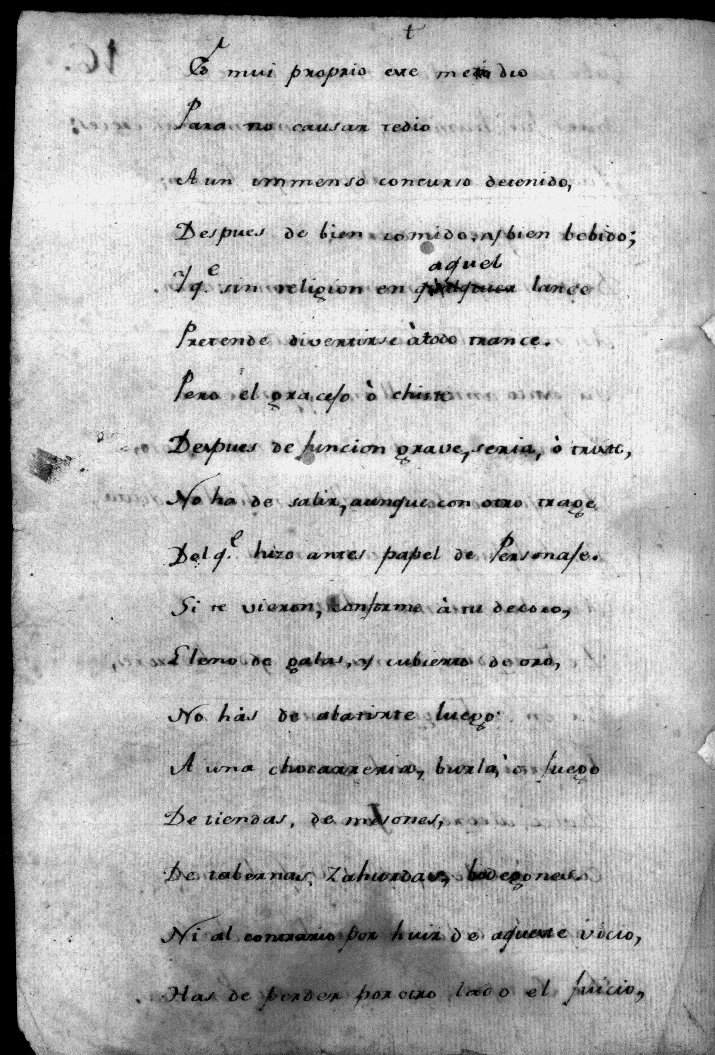 Es mui proprio este medio
Para no causar tedio
A un immenso concurso detenido,
Despues de bien comido, y bien bebido;
Y q.e sin religion en aquel lance
Pretende divertirse à todo trance.
Pero el gracejo ò chiste
Despues de funcion grave, seria, ò triste,
No ha de salir, aunque con otro trage
Del q.e hizo antes papel de Personaje.
Si te vieron, conforme à tu decoro,
Lleno de galas, y cubierto de oro,
No hàs de abatirte luego
A una chocarreria, burla, ò juego
De tiendas, de mesones,
De tabernas, Zahurdas, bodegones.
Ni al contrario por huir de aqueste vicio,
Has de perder por otro lado el juicio,